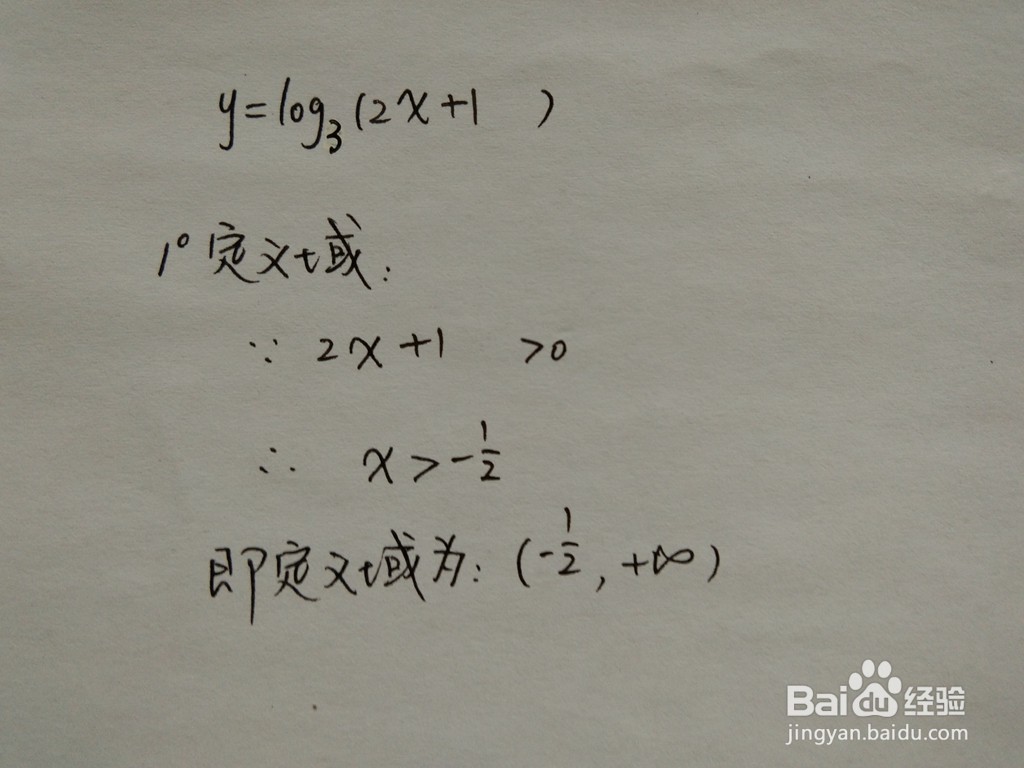 y=log₃(2x+1 )
1° 定义域:
∵ 2x+1 >0
∴ x>-1/2
即定义域为: (-1/2, +∞)
Bai 经验
jingyan.baidu.com